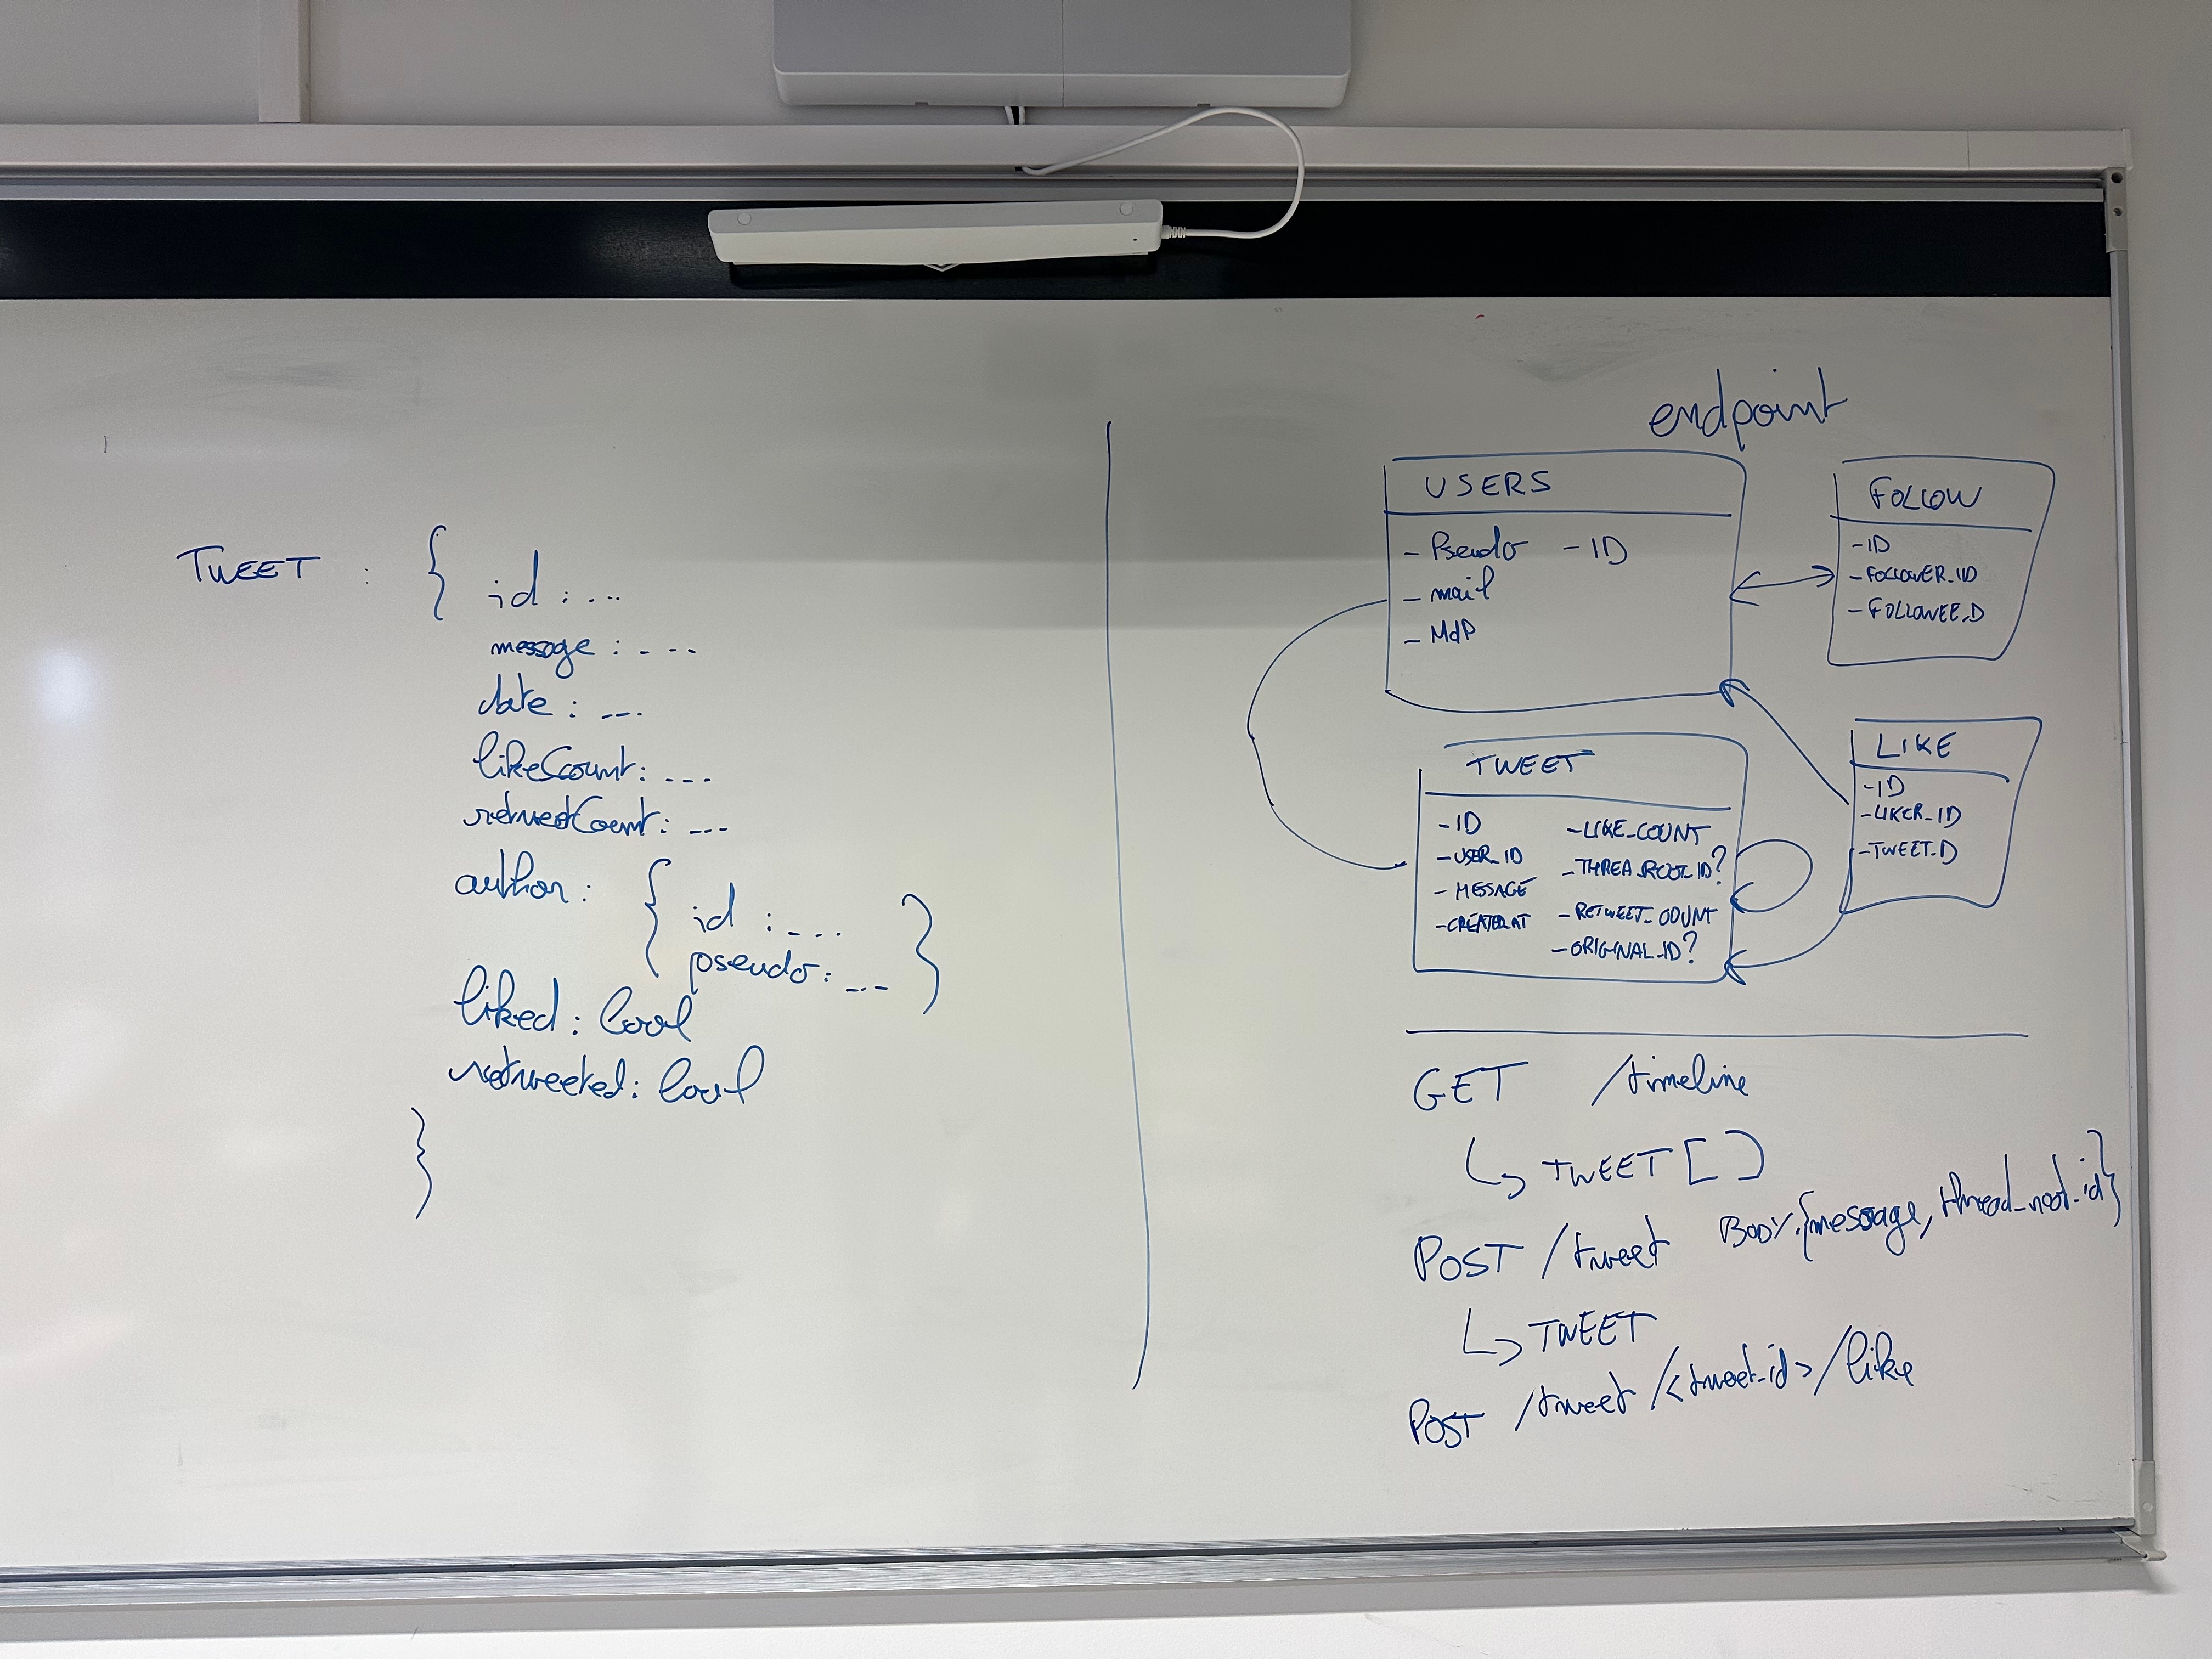 TWEET : {
id : ...
message : ...
date : ...
likeCount : ...
retweetCount : ...
author : {
id : ...
pseudo : ...
}
liked : bool
retweeted : bool
}
endpoint
USERS
- Pseudo - ID
- mail
- MdP
FOLLOW
- ID
- FOLLOWER_ID
- FOLLOWEE_ID
TWEET
- ID
- USER_ID
- MESSAGE
- CREATED_AT
- LIKE_COUNT
- THREA_ROOT_ID?
- RETWEET_COUNT
- ORIGINAL_ID?
LIKE
- ID
- LIKER_ID
- TWEET_ID
GET /timeline
↳ TWEET []
POST /tweet BODY:{message, thread_root_id}
↳ TWEET
POST /tweet/<tweet_id>/like